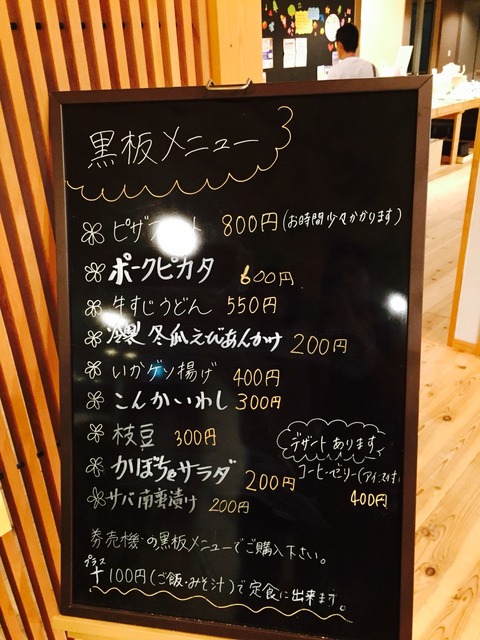 黒板メニュー
800円(お時間少々かかります)
ポークピカタ 600円
牛すじうどん 550円
冷製 冬瓜えびあんかけ 200円
いかゲソ揚げ 400円
こんかいわし 300円
枝豆 300円
かぼちゃサラダ 200円
サバ南蛮漬け 200円
デザートあります
コーヒーゼリー(アイス付)
400円
券売機の黒板メニューでご購入下さい。
プラス
+100円(ご飯・みそ汁)で定食に出来ます。